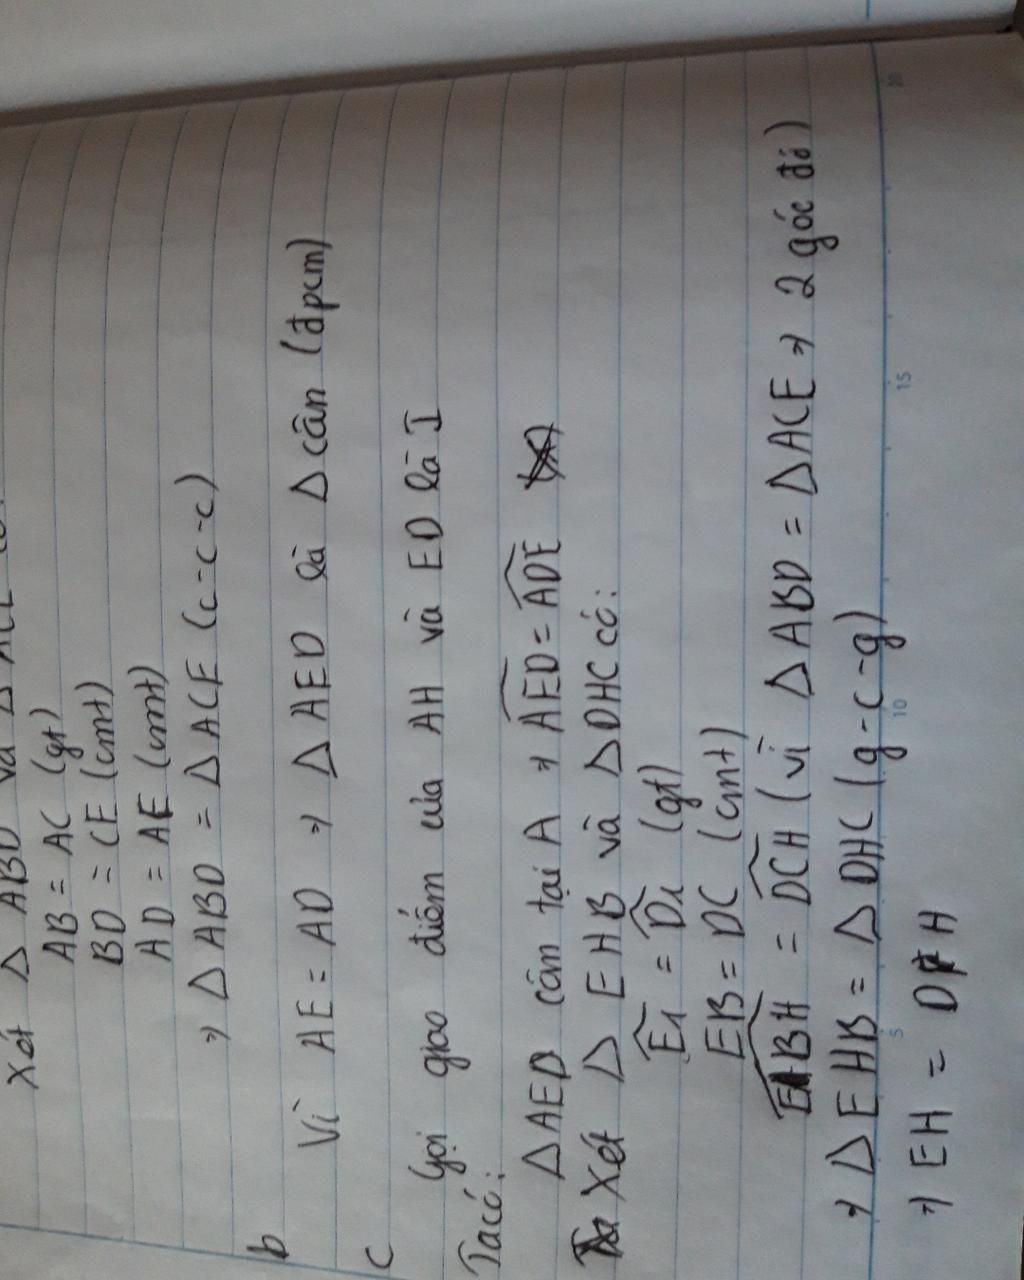 Xét Δ ABD và Δ ACE có:
AB = AC (gt)
BD = CE (cmt)
AD = AE (cmt)
=> Δ ABD = Δ ACE (c-c-c)
b Vì AE = AD => Δ AED là Δ cân (đpcm)
c Gọi giao điểm của AH và ED là I
Ta có:
Δ AED cân tại A => \widehat{AED} = \widehat{ADE}
Xét Δ EHB và Δ DHC có:
\widehat{E_1} = \widehat{D_1} (gt)
EB = DC (cmt)
\widehat{EBH} = \widehat{DCH} (vì Δ ABD = Δ ACE => 2 góc đó)
=> Δ EHB = Δ DHC (g-c-g)
=> EH = DH
5 10 15 20